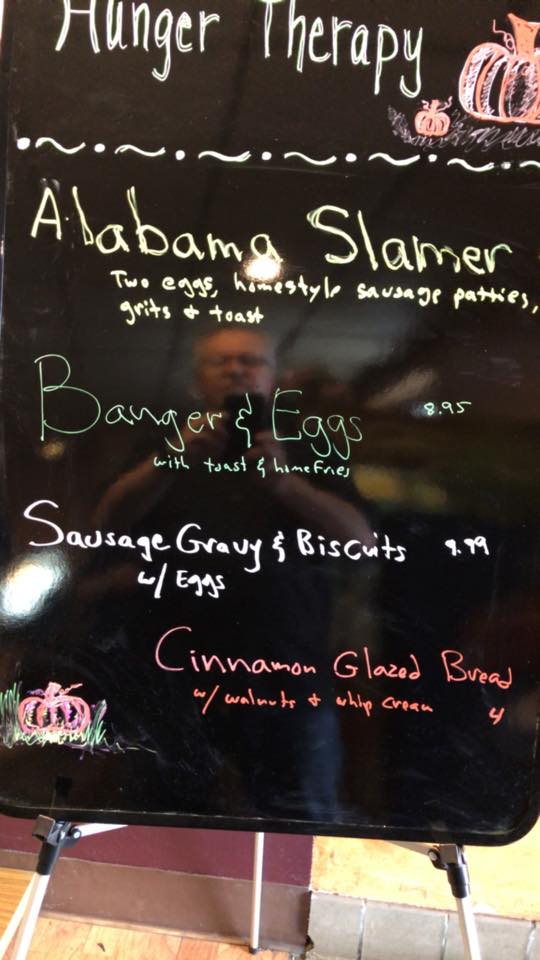 Hunger Therapy
Alabama Slamer
Two eggs, homestyle sausage patties,
grits & toast
Banger & Eggs 8.95
with toast & homeFries
Sausage Gravy & Biscuits 9.99
w/ Eggs
Cinnamon Glazed Bread
w/ walnuts & whip cream 4